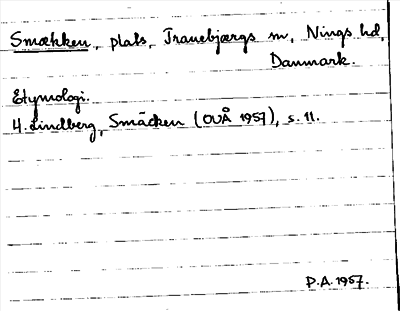 Smækken, plats, Tranebjærgs sn, Nings hd,
Danmark.
Etymologi.
H. Lindberg, Smäcken (OUÅ 1957), s. 11.
P.A. 1957.